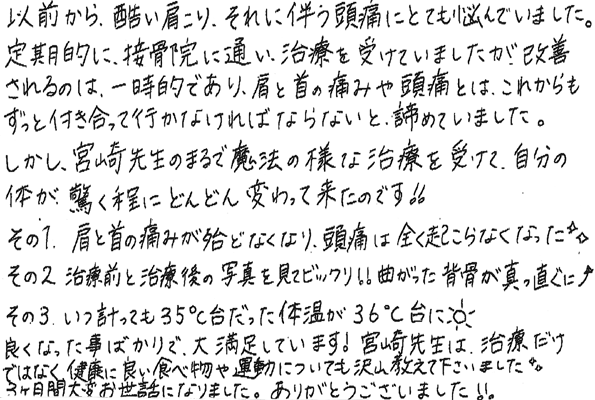 以前から、酷い肩こり、それに伴う頭痛にとても悩んでいました。
定期的に、接骨院に通い、治療を受けていましたが、改善
されるのは、一時的であり、肩と首の痛みや頭痛とは、これからも
ずっと付き合って行かなければならないと、諦めていました。
しかし、宮崎先生のまるで魔法の様な治療を受けて、自分の
体が、驚く程にどんどん変わって来たのです!!
その1. 肩と首の痛みが殆どなくなり、頭痛は全く起こらなくなった
その2. 治療前と治療後の写真を見てビックリ!!曲がった背骨が真っ直ぐに
その3. いつ計っても35℃台だった体温が36℃台に
良くなった事ばかりで、大満足しています!宮崎先生は、治療だけ
ではなく健康に良い食べ物や運動についても沢山教えて下さいました
3ヶ月間大変お世話になりました。ありがとうございました!!。